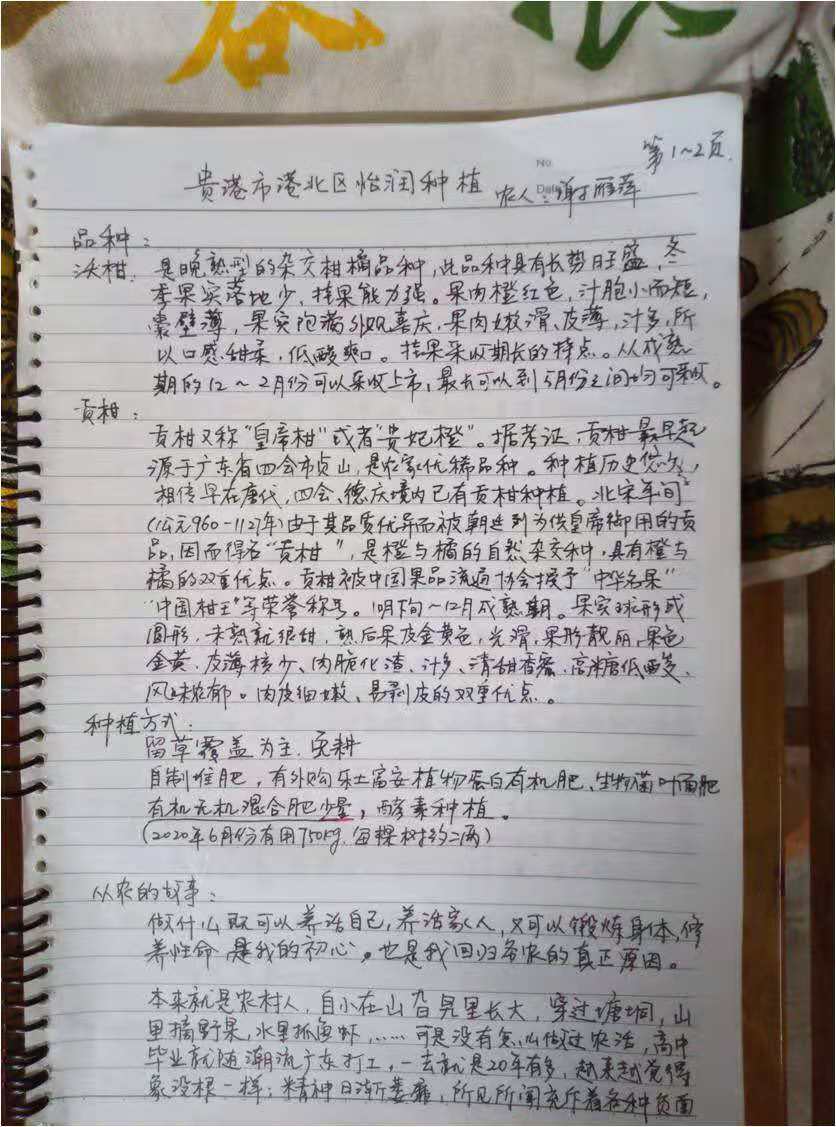 第1~2页.
No.
贵港市港北区怡润种植
Date
农人:谢雁萍
品种:
沃柑. 是晚熟型的杂交柑橘品种,此品种具有长势旺盛,冬
季果实落地少,挂果能力强。果肉橙红色,汁胞小而短,
囊壁薄,果实饱满外观喜庆,果肉嫩滑、皮薄,汁多,所
以口感甜柔,低酸爽口。挂果采收期长的特点。从成熟
期的12~2月份可以采收上市,最长可以到5月份之间均可采收。
贡柑:
贡柑又称“皇帝柑”或者“贵妃橙”。据考证,贡柑最早起
源于广东省四会市贞山,是农家优稀品种。种植历史悠久,
相传早在唐代,四会、德庆境内已有贡柑种植。北宋年间
(公元960-1127年)由于其品质优异而被朝廷列为供皇帝御用的贡
品,因而得名“贡柑”,是橙与橘的自然杂交种,具有橙与
橘的双重优点。贡柑被中国果品流通协会授予“中华名果”
“中国柑王”等荣誉称号。10月下旬~12月成熟期。果实球形或
圆形,未熟就很甜,熟后果皮金黄色,光滑,果形靓丽,果色
金黄、皮薄核少、肉脆化渣、汁多、清甜香蜜、高糖低酸、
风味浓郁。肉皮细嫩、易剥皮的双重优点。
种植方式.
留草覆盖为主.免耕
自制堆肥,有外购乐土富安植物蛋白有机肥、生物菌叶面肥
有机无机混合肥少量,酵素种植。
(2020年6月份有用750kg.每棵树约二两)
从农的故事:
做什么既可以养活自己,养活家人,又可以锻炼身体,修
养性命,是我的初心。也是我回归务农的真正原因。
本来就是农村人,自小在山旮旯里长大,穿过塘垌,山
里摘野果,水里抓鱼虾,……可是没有怎么做过农活,高中
毕业就随潮流广东打工,一去就是20年有多,越来越觉得
象没根一样;精神日渐萎靡,所见所闻充斥着各种负面